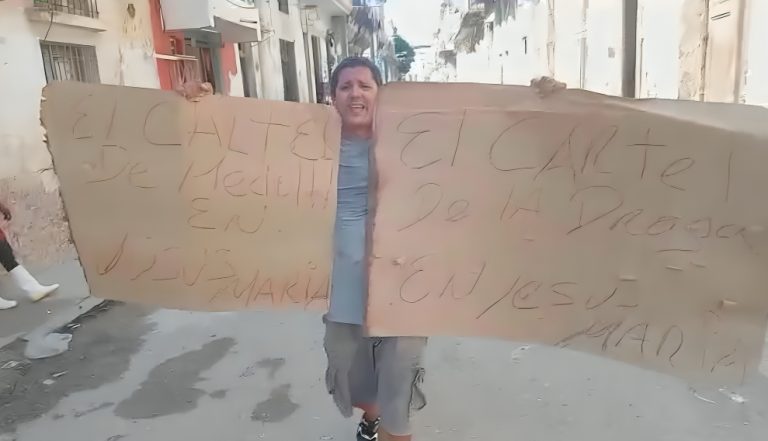 El CALTEL
De Medellin
EN
JESUS
MARIA
El CARTel
De lA DROGA
EN JESUS
MARIA